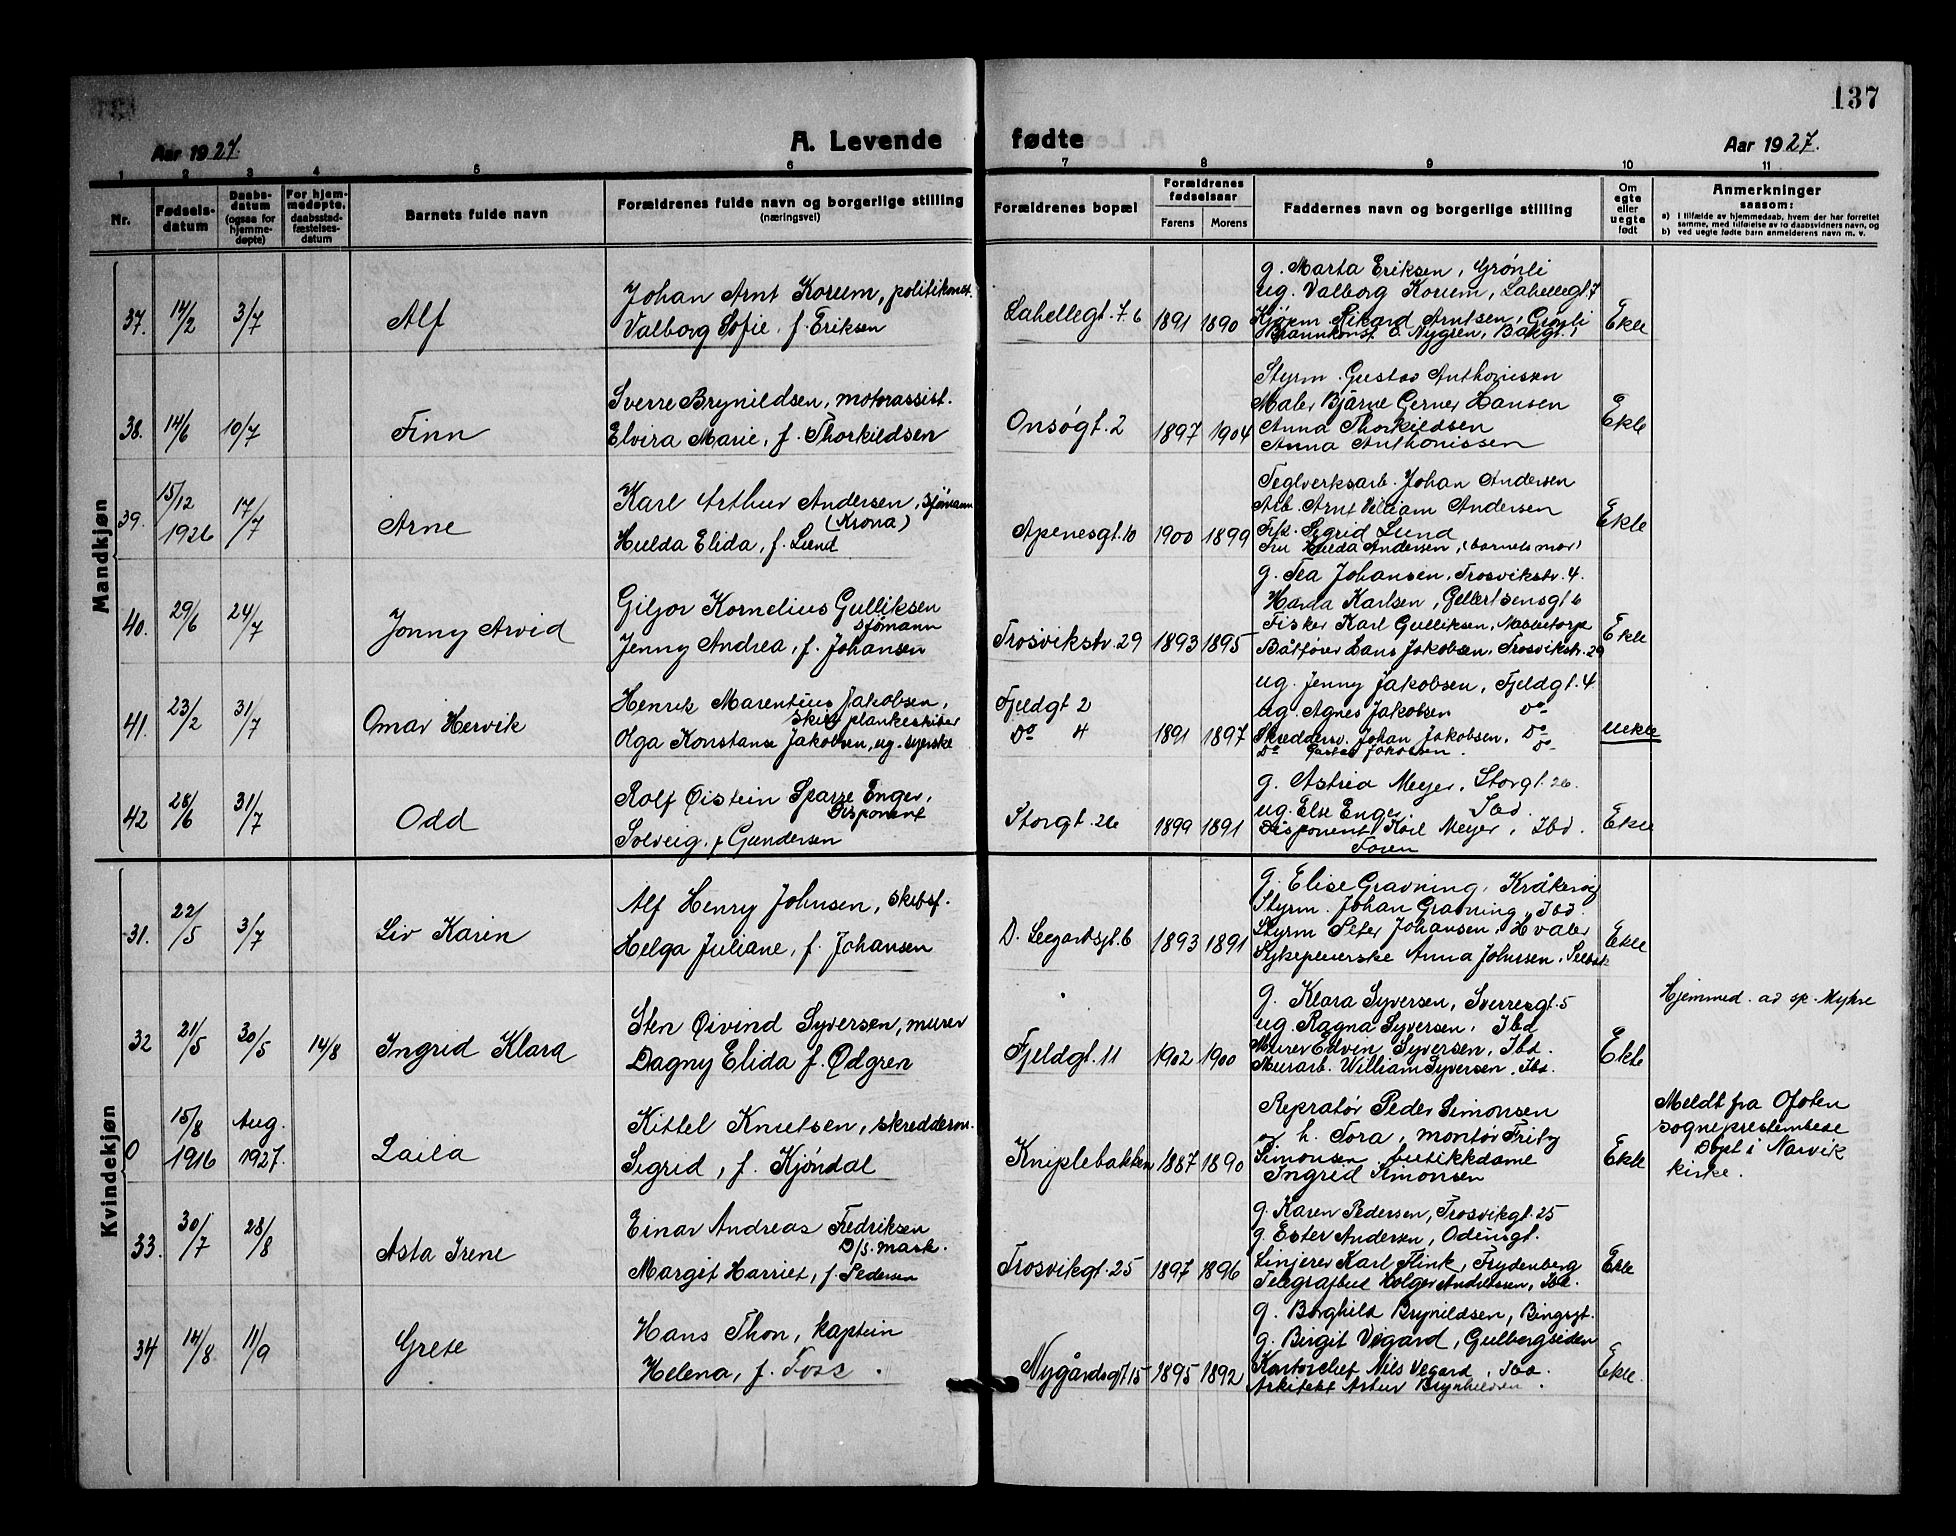 137
Aar 1927.
A. Levende fødte
Aar 1927.
1 2 3 4 5 6 7 8 9 10 11
Nr.
Fødsels-
datum
Daabs-
datum
(ogsaa for
hjemme-
døpte)
For hjem-
medøpte,
daabsstad-
fæstelses-
datum
Barnets fulde navn
Forældrenes fulde navn og borgerlige stilling
(næringsvei)
Forældrenes bopæl
Forældrenes
fødselsaar
Farens Morens
Faddernes navn og borgerlige stilling
Om
egte
eller
uegte
født
Anmerkninger
saasom:
a) I tilfælde av hjemmedaab, hvem der har forrettet
samme, med tilføielse av to daabsvidners navn, og
b) ved uegte fødte barn anmelderens navn m. v.
Mandkjøn
37. 14/2 3/7 Alf
Johan Arnt Korum, politikonst.
Valborg Sofie, f. Eriksen
Lahellegt. 7.6 1891 1890
g. Marta Eriksen, Grønli
ug. Valborg Korum, Lahellegt 7
Rikard Arntsen, Grønli
Brannkonst. O. Nygren, Bakgt. 1
Ekte
38. 14/6 10/7 Finn
Sverre Brynildsen, motorassist.
Elvira Marie, f. Thorkildsen
Onsøgt. 2 1897 1904
Styrm. Gustav Anthonissen
Maler Bjarne Gerner Hansen
Anna Thorkildsen
Anna Anthonissen
Ekte
39. 15/12 1926 17/7 Arne
Karl Arthur Andersen, sjömann
(Krona)
Hulda Elida, f. Lund
Apenesgt. 10 1900 1899
Teglverksarb. Johan Andersen
Arb. Arnt Villiam Andersen
Frk. Sigrid Lund
Fru Hulda Andersen, (barnets mor)
Ekte
40. 29/6 24/7 Jonny Arvid
Giljor Kornelius Gulliksen
sjömann
Jenny Andrea, f. Johansen
Trosvikstr 29 1893 1895
g. Tea Johansen, Trosvikstr. 4.
Harda Karlsen, Gellertsensgt 6
Fisker Karl Gulliksen, Nabbetorp
Båtfører Hans Jakobsen, Trosvikstr. 29
Ekte
41. 23/2 31/7 Omar Hervik
Henrik Marentius Jakobsen,
skibsplankeskiber
Olga Konstanse Jakobsen, ug. syerske
Fjeldgt 2
Do 4 1891 1897
ug. Jenny Jakobsen, Fjeldgt. 4
ug. Agnes Jakobsen Do
Skreddersv. Johan Jakobsen, Do
Do Gustav Jakobsen. Do
uekte
42 28/6 31/7 Odd
Rolf Øistein Sparre Enger,
Disponent
Solveig, f Gundersen
Storgt. 26 1899 1891
g. Astrid Meyer, Storgt. 26.
ug. Else Enger, Ibd.
Disponent Karl Meyer, Ibd.
Faren
Ekte
Kvindekjøn
31. 22/5 3/7 Liv Karin
Alf Henry Johnsen, skibsf.
Helga Juliane, f. Johansen
D. Leegardsgt. 6 1893 1891
g. Elise Gravning, Kråkerøy
Styrm. Johan Gravning, Ibd.
Styrm Peter Johansen, Hvaler
Sykepleierske Anna Johnsen, Selbak
Ekte
32 21/5 30/5 14/8 Ingrid Klara
Sten Øivind Syversen, murer
Dagny Elida f. Ødgren
Fjeldgt. 11 1902 1900
g. Klara Syversen, Sverresgt. 5
ug. Ragna Syversen, Ibd
Murer Edvin Syversen, Ibd.
Murarb. William Syversen, Ibd.
Ekte
Hjemmed. av sp. Myhre
0 15/8 1916 Aug. 1927. Laila
Kittel Knutsen, skredderm.
Sigrid, f. Kjöndal
Kniplebakken 1887 1890
Repratør Peder Simonsen
og h. Tora, montør Fritz
Simonsen butikkdame
Ingrid Simonsen
Ekte
Meldt fra Ofoten
sogneprestembede
Døpt i Narvik
kirke.
33. 30/7 28/8 Asta Irene
Einar Andreas Fredriksen
D/S. mask.
Margit Harriet, f. Pedersen
Trosvikgt. 25 1897 1896
g. Karen Pedersen, Trosvikgt. 25
g. Ester Andersen, Odinsgt.
Linjerer Karl Flink, Frydenberg
Telegrafbud Holger Andreassen, Ibd.
Ekte
34 14/8 11/9 Grete
Hans Thon, kaptein
Helena, f. Foss.
Nygårdsgt 15 1895 1892
g. Borghild Brynildsen, Bingsgt.
g. Birgit Vegard, Gulbergsiden
Kontorchef Nils Vegard, Ibd.
Arkitekt Artur Brynhildsen.
Ekte.